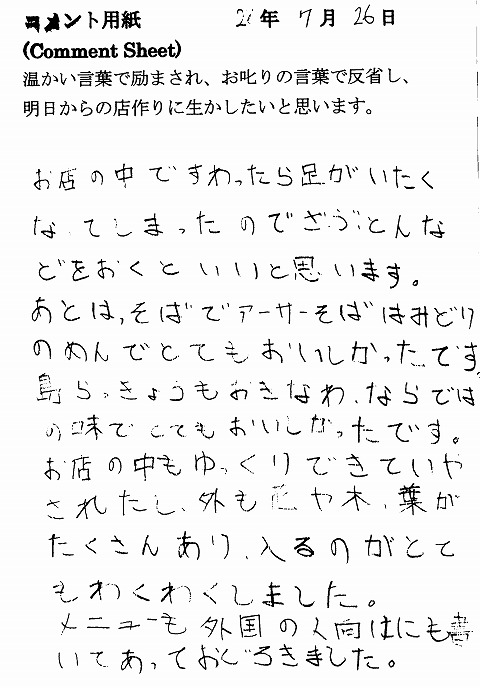 コメント用紙 21年 7月 26日
(Comment Sheet)
温かい言葉で励まされ、お叱りの言葉で反省し、
明日からの店作りに生かしたいと思います。
お店の中ですわったら足がいたく
なってしまったのでざぶとんな
どをおくといいと思います。
あとは、そばでアーサーそばはみどり
のめんでとてもおいしかったです
島らっきょうもおきなわ、ならでは
の味でとてもおいしかったです。
お店の中もゆっくりできていや
されたし、外も花や木、葉が
たくさんあり、入るのがとて
もわくわくしました。
メニューも外国の人向けにも書
いてあっておどろきました。